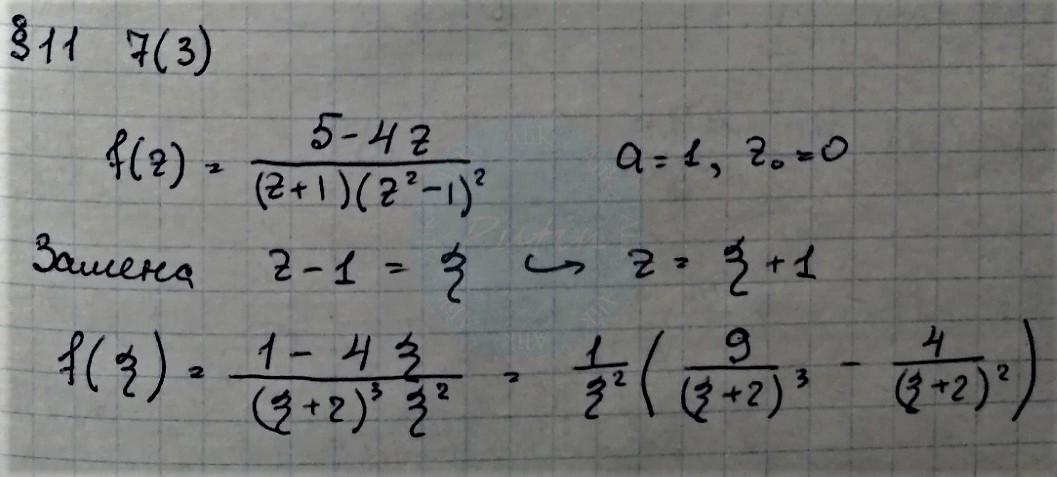 §11 7(3)
f(z) = (5-4z)/((z+1)(z²-1)²) a=1, z₀=0
Замена z-1 = ξ ↪ z = ξ+1
f(ξ) = (1-4ξ)/((ξ+2)³ ξ²) = 1/ξ² (9/(ξ+2)³ - 4/(ξ+2)²)